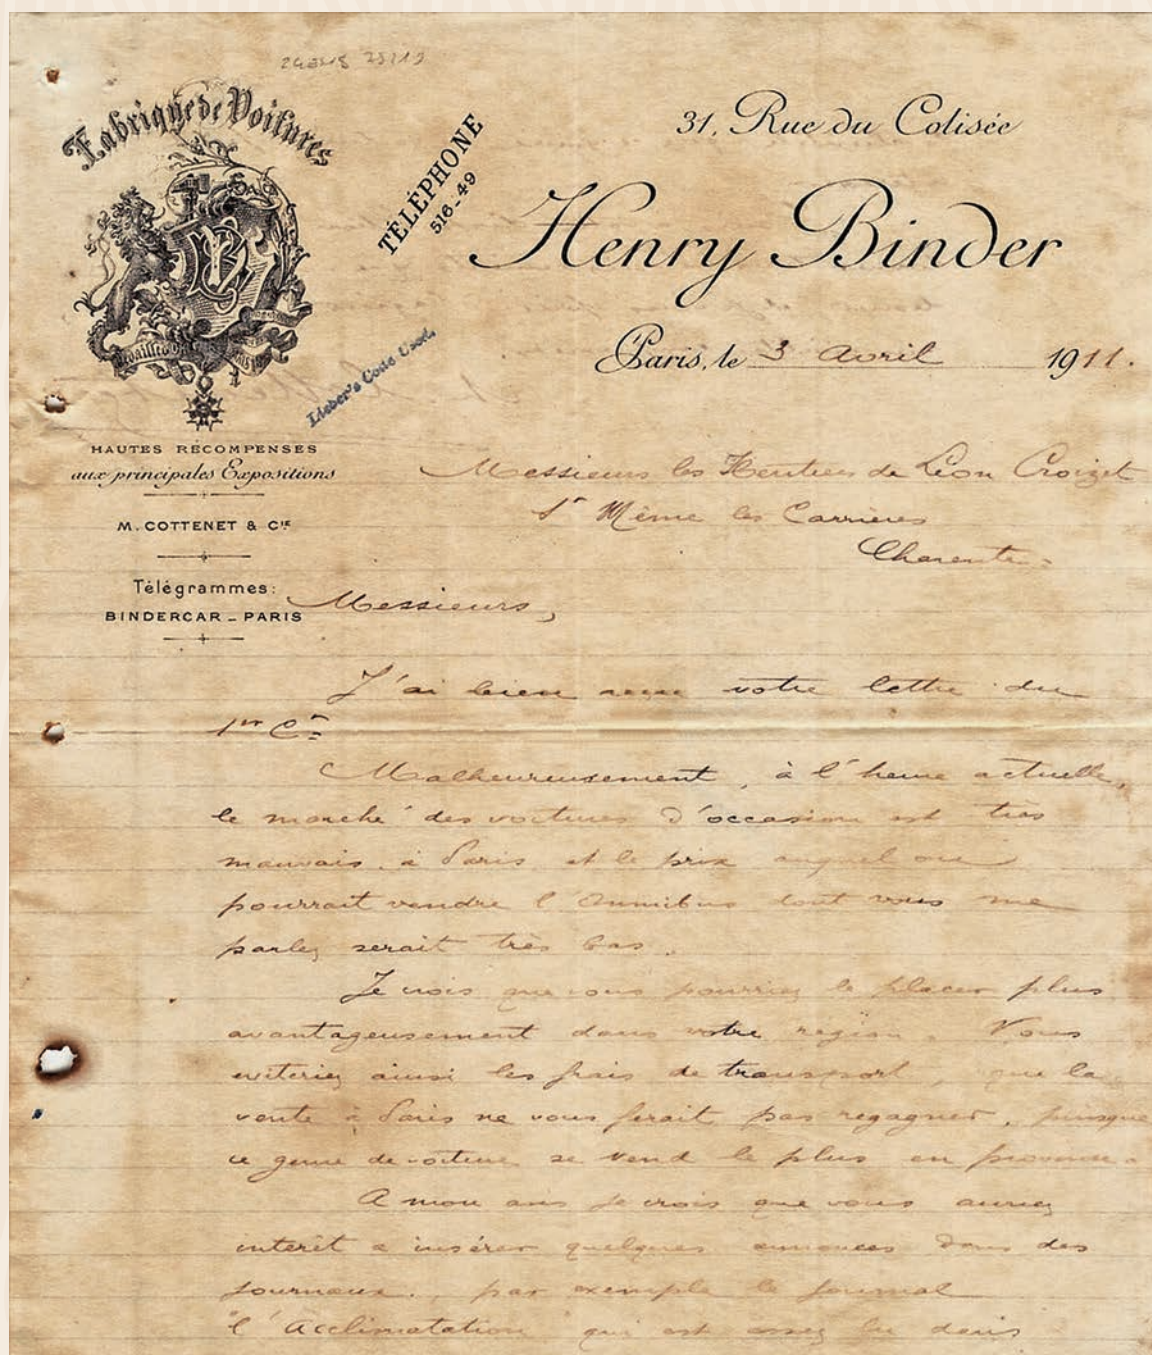 Fabrique de Voitures
TÉLÉPHONE
516-49
31, Rue du Colisée
Henry Binder
Paris, le 3 Avril 1911.
Lieber's Code Used.
HAUTES RÉCOMPENSES
aux principales Expositions
M. COTTENET & CIE
Télégrammes:
BINDERCAR - PARIS
Messieurs les Héritiers de Léon Croizet
St Même les Carrières
Charente.
Messieurs,
J'ai bien reçu votre lettre du
1er Ct
Malheureusement, à l'heure actuelle,
le marché des voitures d'occasion est très
mauvais à Paris et le prix auquel on
pourrait vendre l'Omnibus dont vous me
parlez serait très bas.
Je crois que vous pourriez le placer plus
avantageusement dans votre région. Vous
eviteriez ainsi les frais de transport, que la
vente à Paris ne vous ferait pas regagner, puisque
ce genre de voiture se vend le plus en province.
A mon avis je crois que vous auriez
interêt a insérer quelques annonces dans des
journaux, par exemple le journal
"l'Acclimatation" qui est assez lu dans